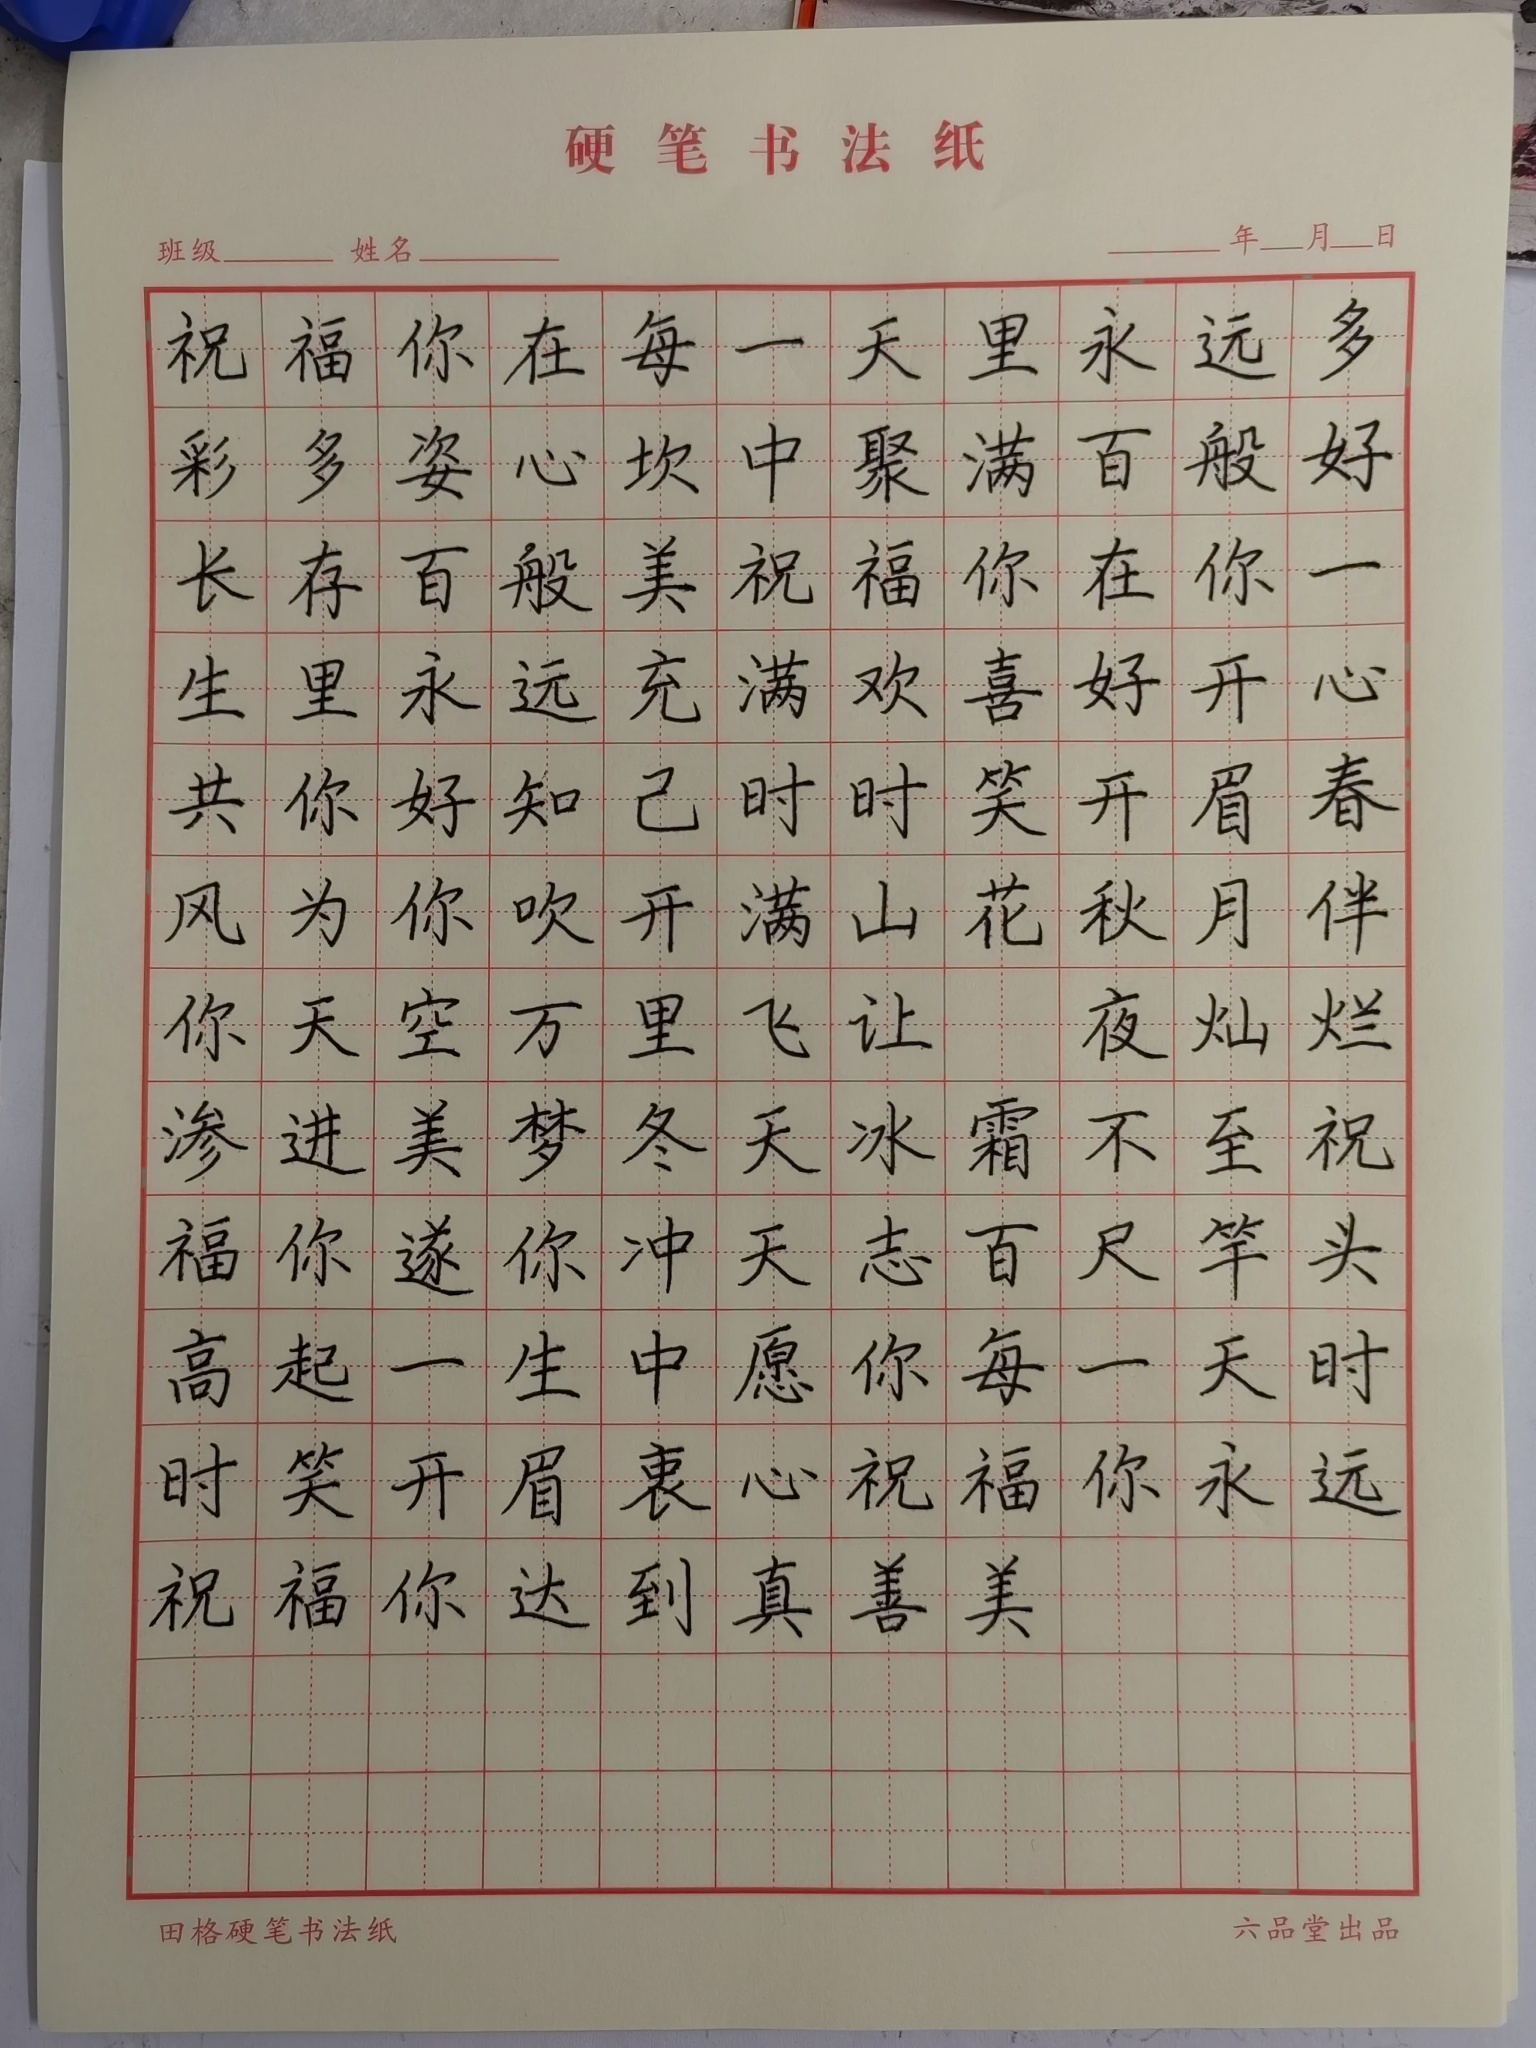 硬笔书法纸
班级 姓名 年 月 日
祝福你在每一天里永远多
彩多姿心坎中聚满百般好
长存百般美祝福你在你一
生里永远充满欢喜好开心
共你好知己时时笑开眉春
风为你吹开满山花秋月伴
你天空万里飞让 夜灿烂
渗进美梦冬天冰霜不至祝
福你遂你冲天志百尺竿头
高起一生中愿你每一天时
时笑开眉衷心祝福你永远
祝福你达到真善美
田格硬笔书法纸 六品堂出品